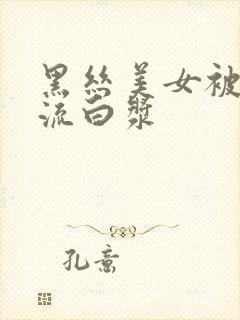 黑丝美女被
流白漿
孔意